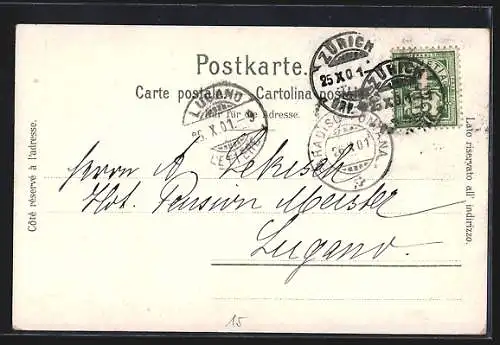 Postkarte.
Carte postale. Cartolina postale.
Nur für die Adresse.
Côté réservé à l'adresse.
Lato riservato all' indirizzo.
ZÜRICH
25 X 01
BRF.
ZÜRICH
LUGANO
X.01.-9
LETTERE
PARADISO
26 X 01
Herrn A
Hot. Pension Meister
Lugano.
15